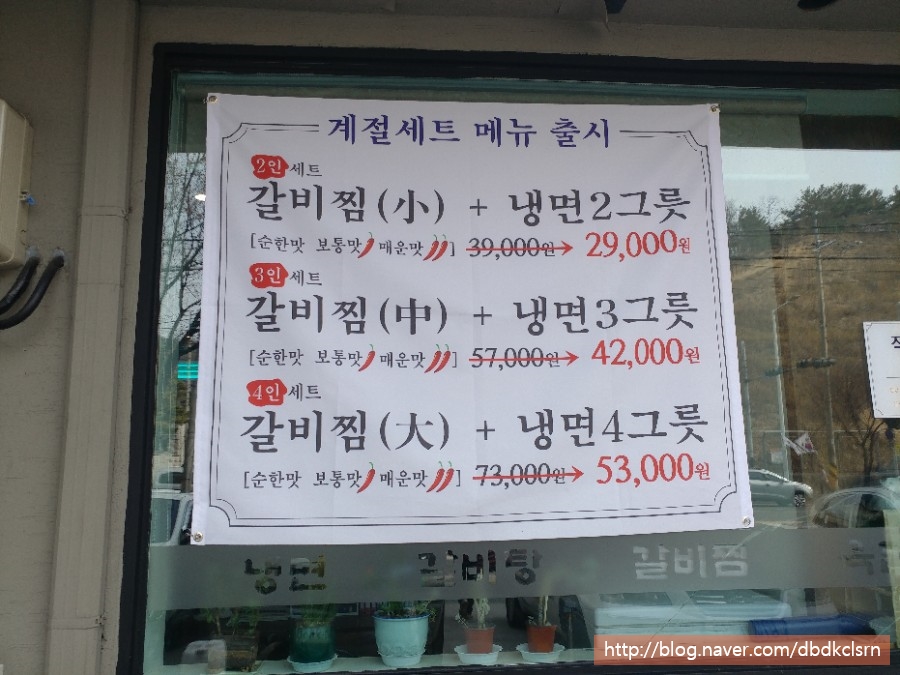 계절세트 메뉴 출시
2인 세트
갈비찜(小) + 냉면2그릇
[순한맛 보통맛 매운맛] 39,000원→ 29,000원
3인 세트
갈비찜(中) + 냉면3그릇
[순한맛 보통맛 매운맛] 57,000원→ 42,000원
4인 세트
갈비찜(大) + 냉면4그릇
[순한맛 보통맛 매운맛] 73,000원→ 53,000원
냉면 갈비탕 갈비찜
http://blog.naver.com/dbdkclsrn